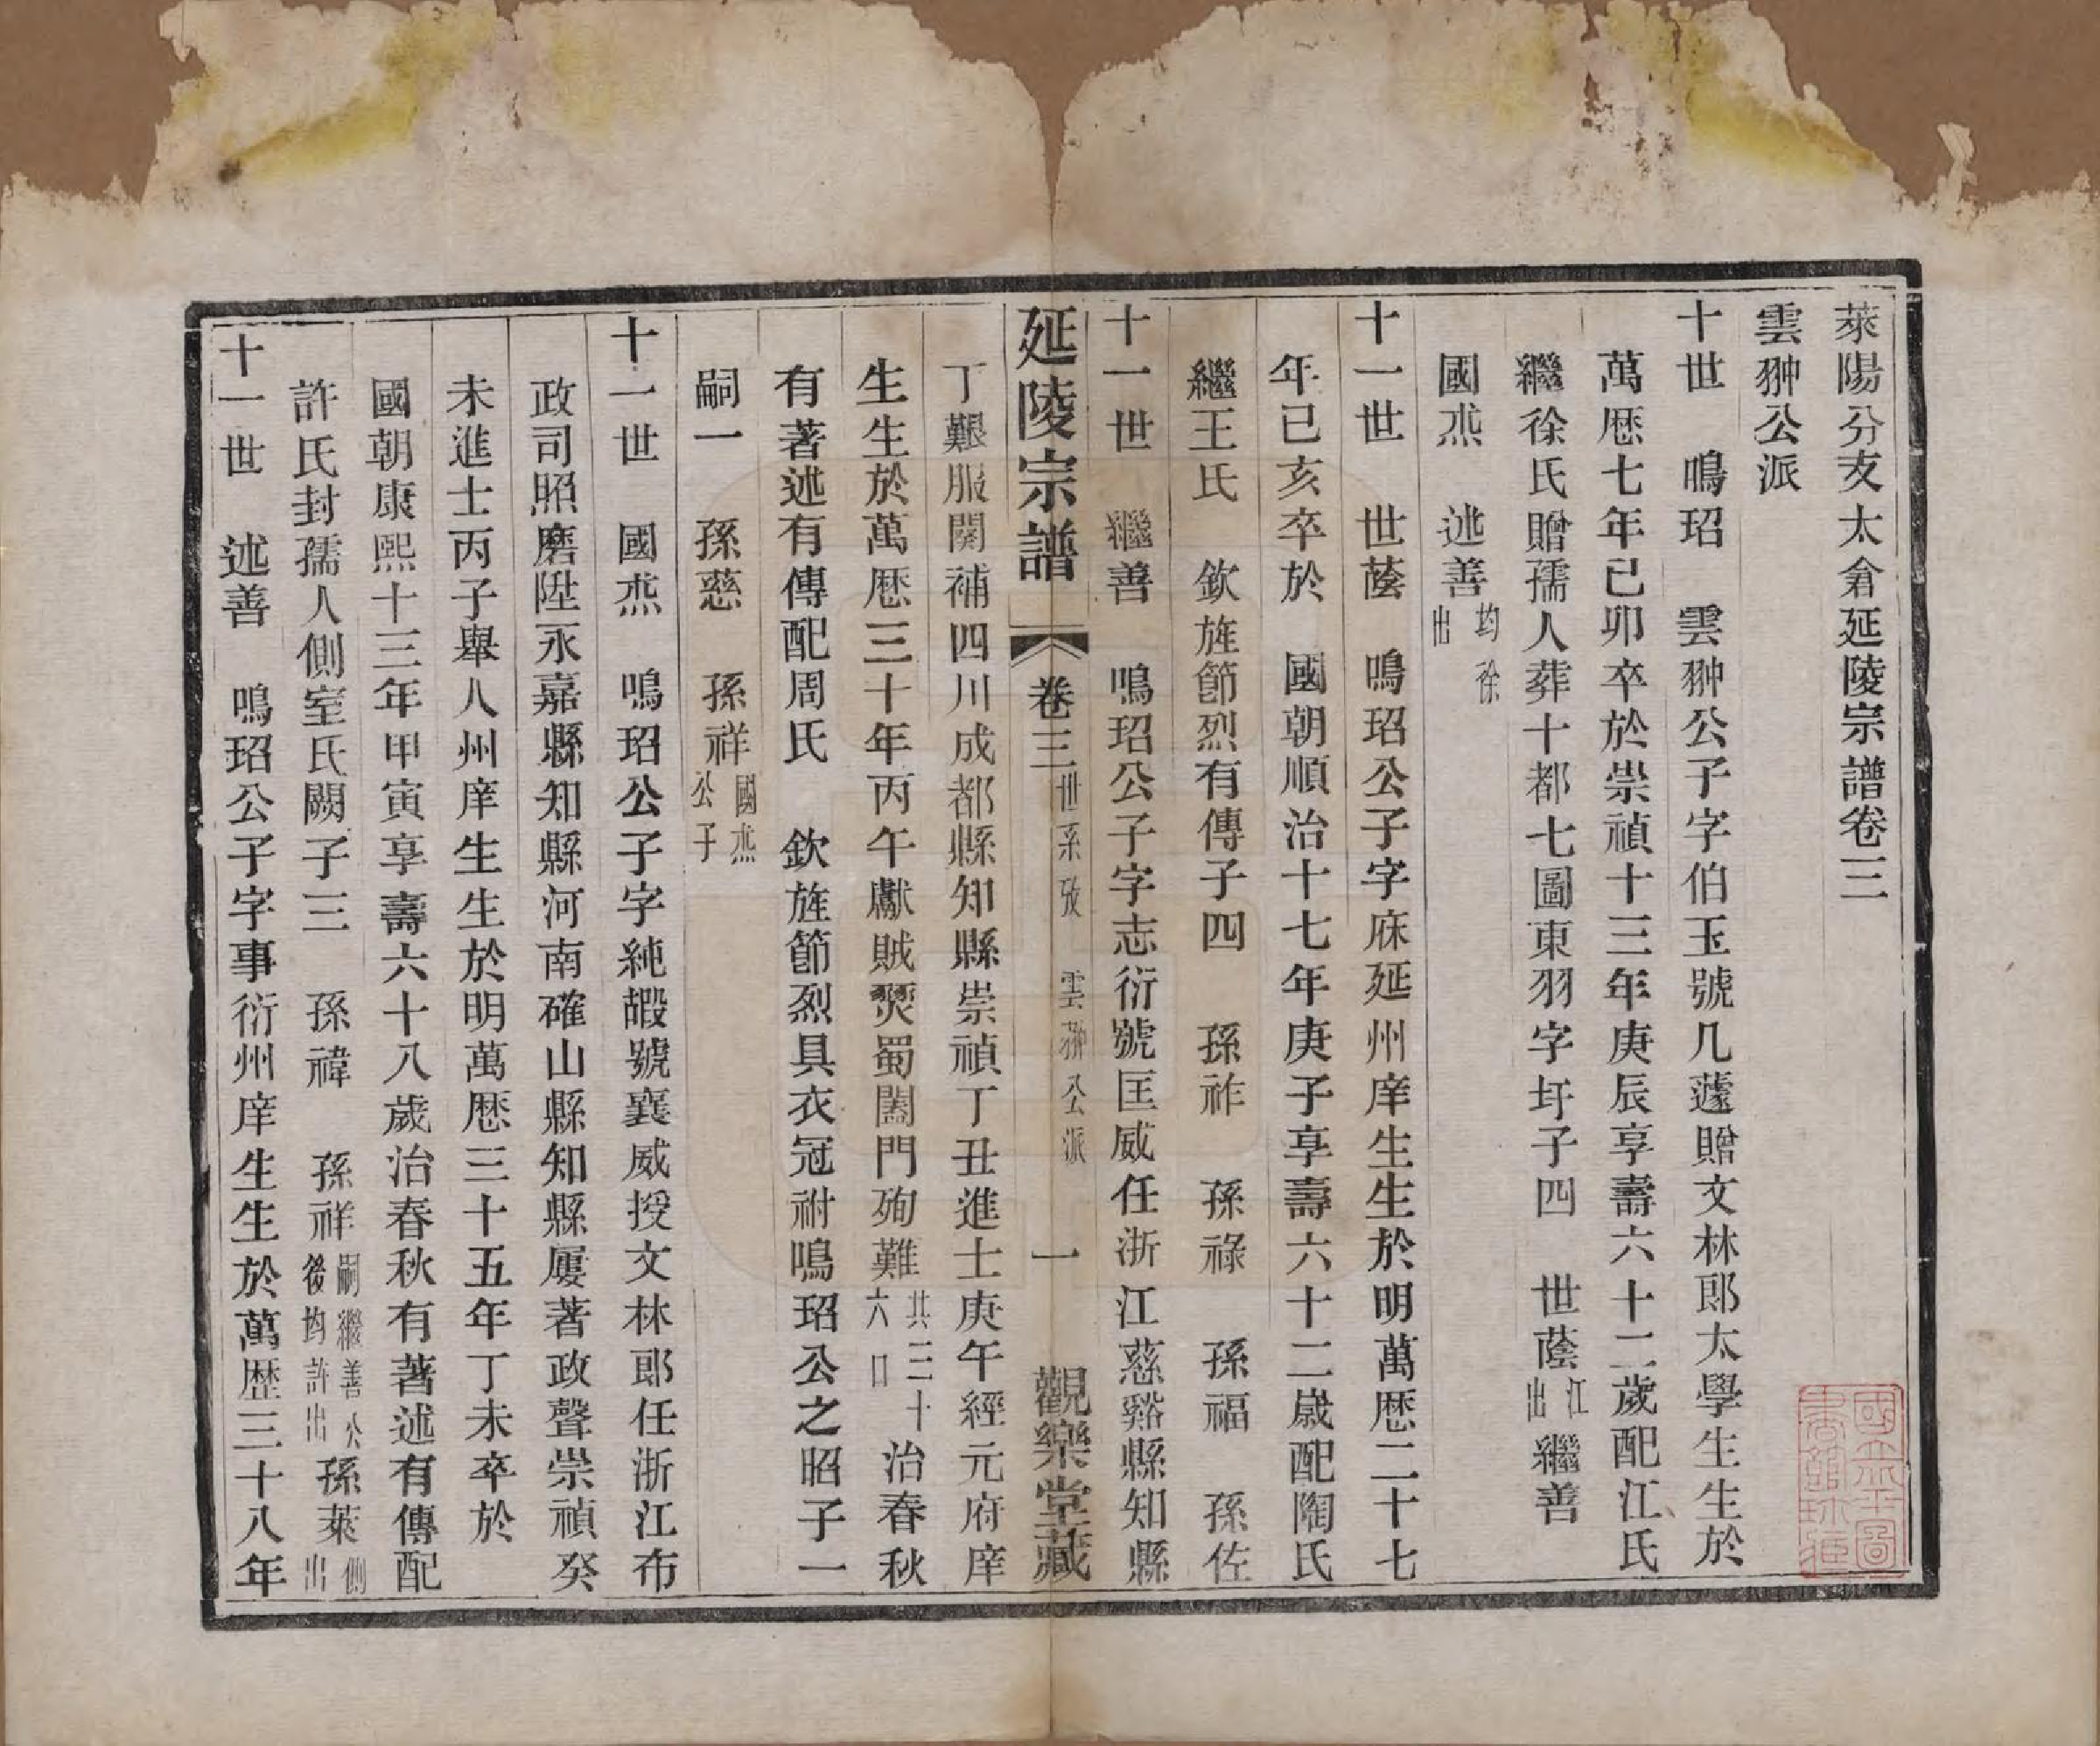 萊陽分支太倉延陵宗譜卷三
雲翀公派
十世　鳴玿　雲翀公子字伯玉號几蘧贈文林郎太學生生於
萬厯七年己卯卒於崇禎十三年庚辰享壽六十二歲配江氏
繼徐氏贈孺人葬十都七圖東羽字圩子四　世蔭江出繼善
國𤇆　述善均徐出
十一世　世蔭　鳴玿公子字庥延州庠生生於明萬厯二十七
年己亥卒於　國朝順治十七年庚子享壽六十二歲配陶氏
繼王氏　欽旌節烈有傳子四　孫祚　孫祿　孫福　孫佐
十一世　繼善　鳴玿公子字志衍號匡威任浙江慈谿縣知縣
延陵宗譜　卷三世系攷　雲翀公派　一　觀樂堂藏
丁艱服闋補四川成都縣知縣崇禎丁丑進士庚午經元府庠
生生於萬厯三十年丙午獻賊燹蜀闔門殉難共三十六口治春秋
有著述有傳配周氏　欽旌節烈具衣冠祔鳴玿公之昭子一
嗣一　孫慈　孫祥國𤇆公子
十一世　國𤇆　鳴玿公子字純嘏號襄威授文林郎任浙江布
政司照磨陞永嘉縣知縣河南確山縣知縣屢著政聲崇禎癸
未進士丙子舉人州庠生生於明萬厯三十五年丁未卒於
國朝康熙十三年甲寅享壽六十八歲治春秋有著述有傳配
許氏封孺人側室氏闕子三　孫禕　孫祥嗣繼善公後均許出孫萊側出
十一世　述善　鳴玿公子字事衍州庠生生於萬歷三十八年